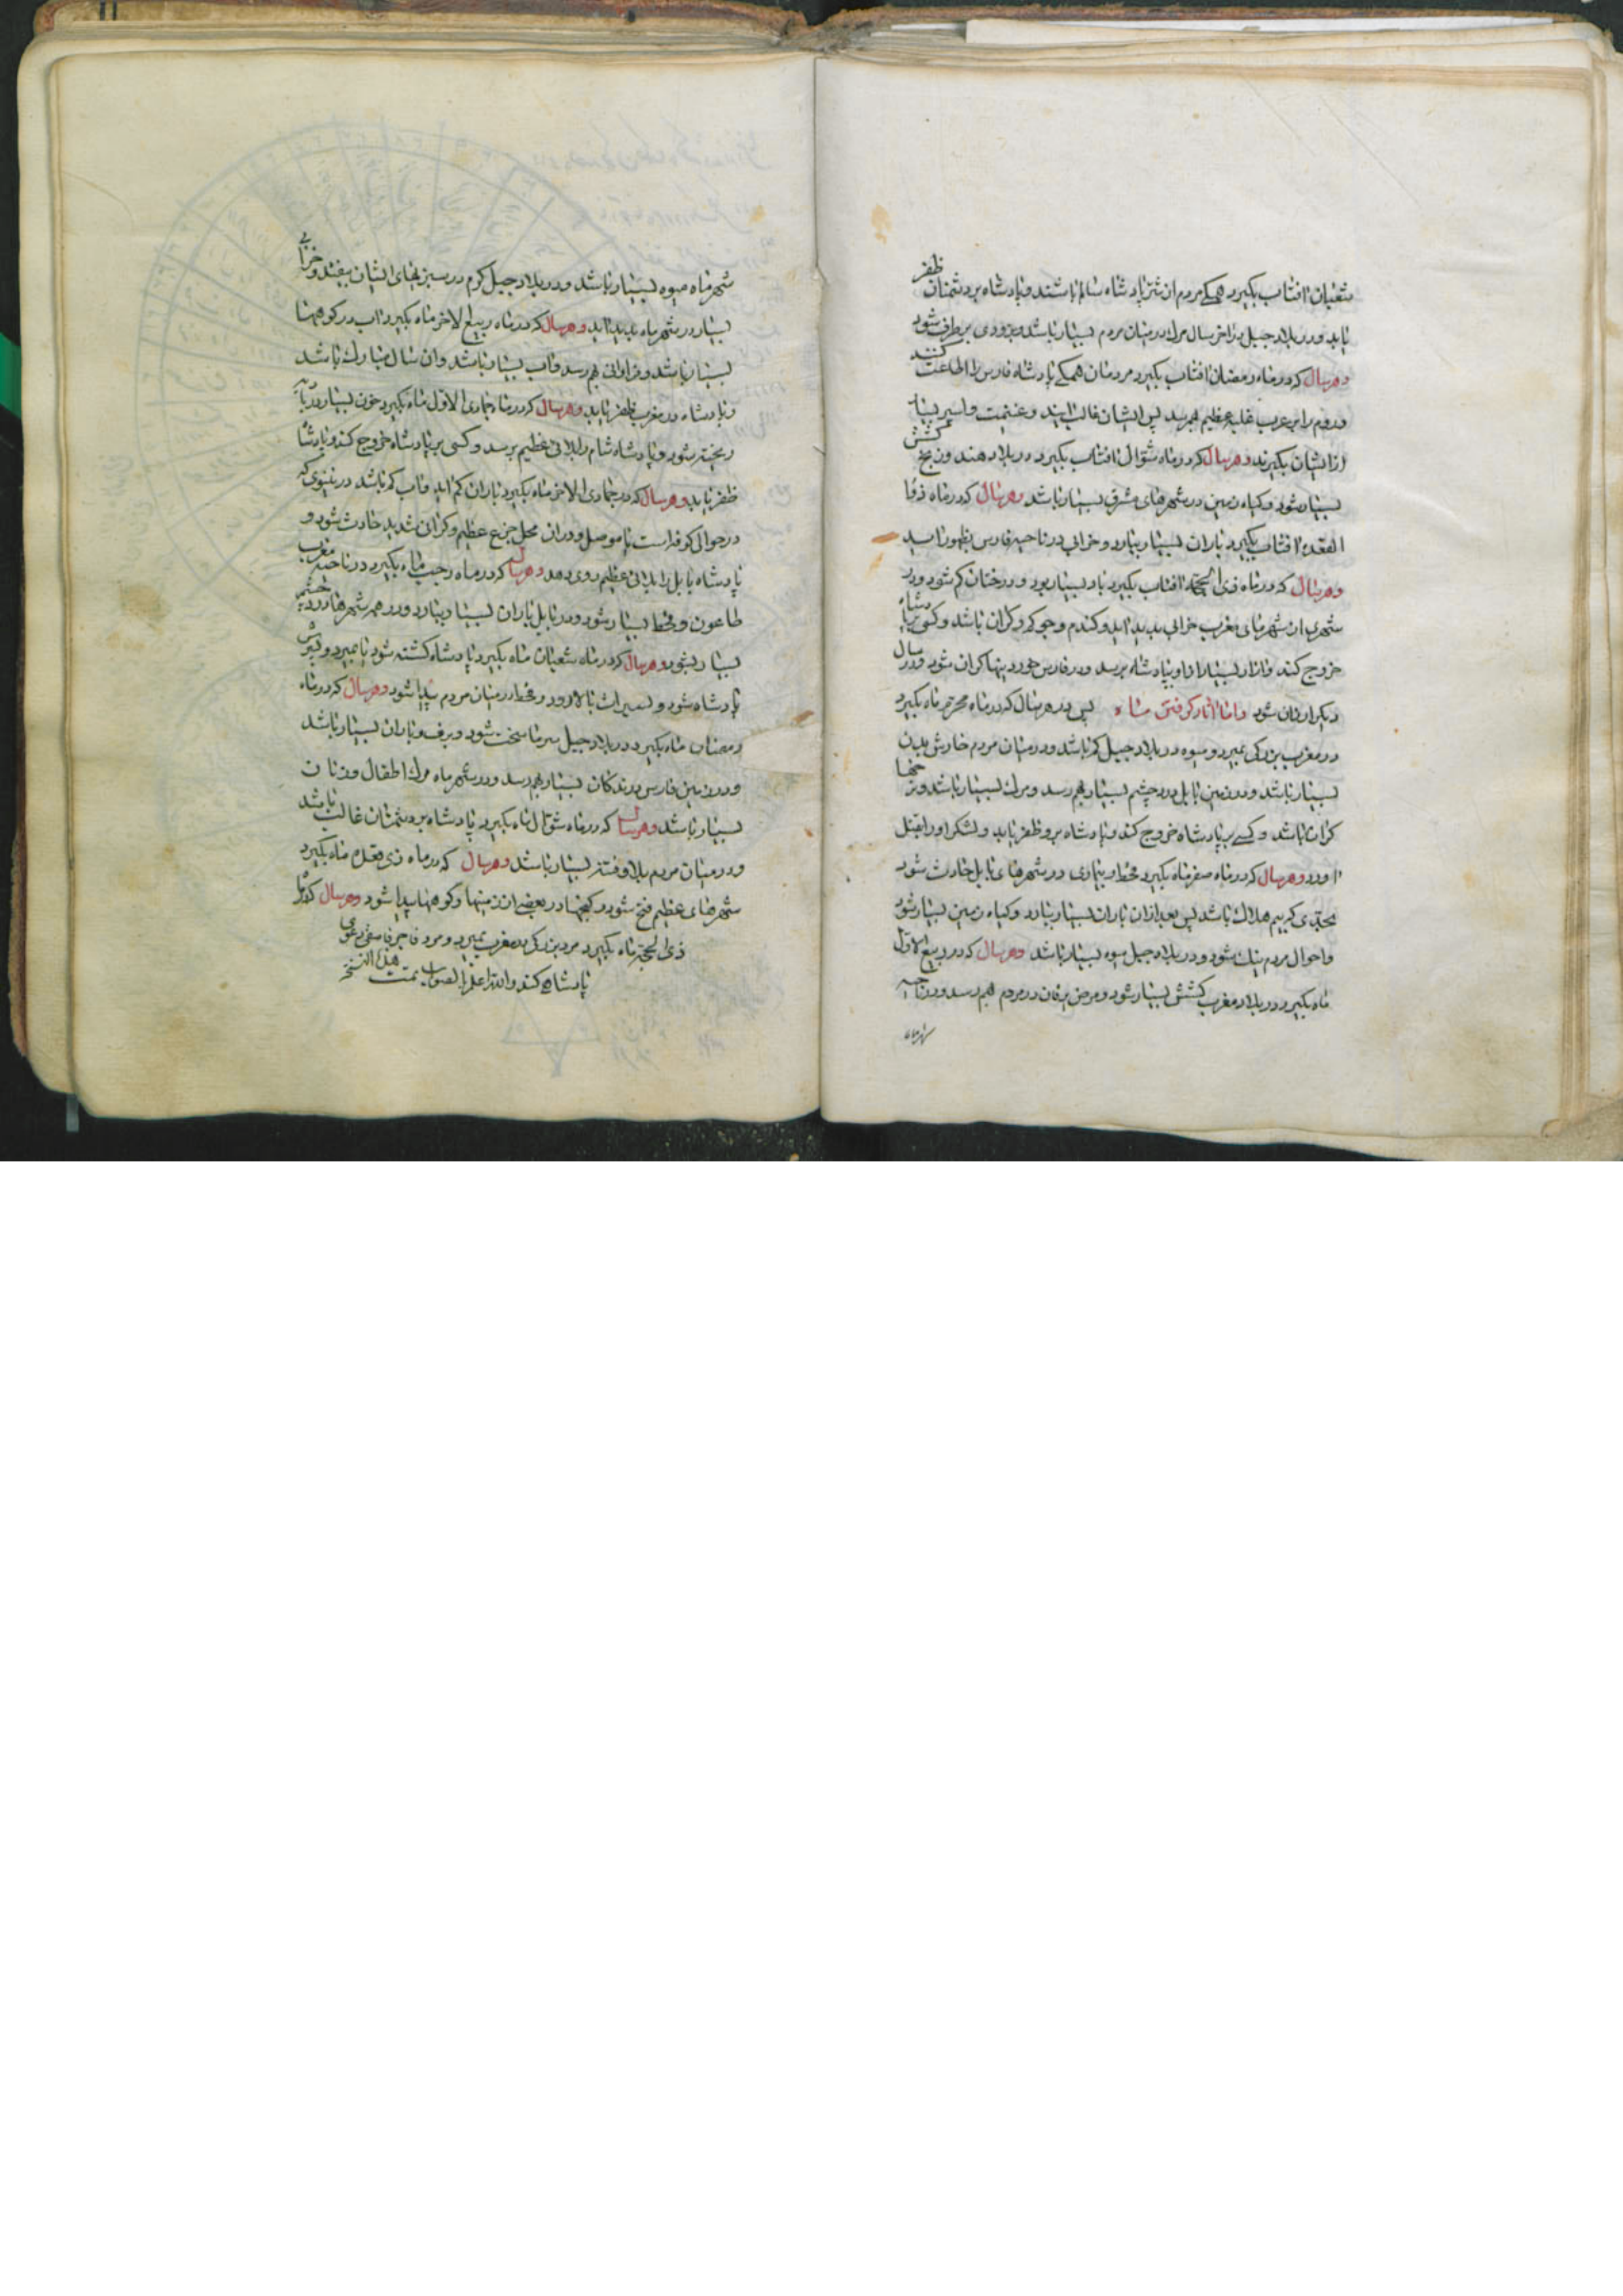 شعبان افتاب بکیرد همکی مردم از شر پادشاه سالم باشند و پادشاه بر دشمنان ظفر
یابد و در بلاد جبیل در اخر سال مرك در میان مردم بسیار باشد و بزودی برطرف شود
و هر سال که در ماه رمضان افتاب بکیرد مردمان همکی پادشاه فارس را اطاعت کنند
و روم را بر عرب غلبه عظیم بهم رسد پس ایشان غالب ایند و غنیمت و اسیر بسیار
از ایشان بکیرند و هر سال که در ماه شوال افتاب بکیرد در بلاد هند و زنج کشش
بسیار شود و کیاه زمین در شهرهای مشرق بسیار باشد و هر سال که در ماه ذی
القعده افتاب بکیرد باران بسیار ببارد و خرابی در ناحیه فارس بظهور اید
و هر سال که در ماه ذی الحجه افتاب بکیرد باد بسیار بود و درختان کم شود و در
شهری از شهرهای مغرب خرابی پدید اید و کندم و جو که و کران باشد و کسی بر پادشاه
خروج کند و ازار بسیار از او بپادشاه برسد و در فارس خوردنیها کران شود و در سال
دیکر ارزان شود و اما اثار کرفتن ماه پس در هر سال که در ماه محرم ماه بکیرد
در مغرب بزرکی بمیرد و میوه در بلاد جبیل کم باشد و در میان مردم خارش بدن
بسیار باشد و در زمین بابل درد چشم بسیار بهم رسد و مرك بسیار باشد و نرخها
کران باشد و کسی بر پادشاه خروج کند و پادشاه بر و ظفر یابد و لشکر او را بقتل
اورد و هر سال که در ماه صفر ماه بکیرد قحط و بیماری در شهرهای بابل حادث شود
بحدی که بیم هلاك باشد پس بعد از ان باران بسیار ببارد و کیاه زمین بسیار شود
و احوال مردم نیك شود و در بلاد جبیل میوه بسیار باشد و هر سال که در ربیع الاول
ماه بکیرد در بلاد مغرب کشش بسیار شود و مرض یرقان در مردم بهم رسد و در ناحیه
شهر ماه
شهر ماه میوه بسیار باشد و در بلاد جبیل کرم در سبزیهای ایشان بیفتد و خرابی
بسیار در شهر ماه پدید اید و هر سال که در ماه ربیع الاخر ماه بکیرد اب در کوهها
بسیار باشد و فراوانی بهم رسد و اب بسیار باشد و ان سال مبارك باشد
و پادشاه در مغرب ظفر یابد و هر سال که در ماه جمادی الاول ماه بکیرد خون بسیار در بادیه
ریخته شود و پادشاه شام را بلائی عظیم برسد و کسی بر پادشاه خروج کند و پادشاه
ظفر یابد و هر سال که در جمادی الاخر ماه بکیرد باران کم اید و اب کم باشد در نینوی که
در حوالی کوفه است یا موصل و در ان محل جزع عظیم و کرانی شدید حادث شود و
پادشاه بابل را بلائی عظیم روی دهد و هر سال که در ماه رجب ماه بکیرد در ناحیه مغرب
طاعون و قحط بسیار شود و در بابل باران بسیار ببارد و در همه شهرها درد چشم
بسیار بشود و هر سال که در ماه شعبان ماه بکیرد پادشاه کشته شود یا بمیرد و پسرش
پادشاه شود و تسعیرات بالا رود و قحط در میان مردم پیدا شود و هر سال که در ماه
رمضان ماه بکیرد در بلاد جبیل سرما سخت شود و برف و باران بسیار باشد
و در زمین فارس درندکان بسیار بهم رسد و در شهر ماه مرك اطفال و زنان
بسیار باشد و هر سال که در ماه شوال ماه بکیرد پادشاه بر دشمنان غالب باشد
و در میان مردم بلا و فتنه بسیار باشد و هر سال که در ماه ذی قعده ماه بکیرد
شهرهای عظیم فتح شود و کنجها در بعضی از زمینها و کوهها پیدا شود و هر سال که در ماه
ذی الحجه ماه بکیرد مرد بزرکی در مغرب بمیرد و مرد فاجر فاسقی دعوی
پادشاهی کند والله اعلم بالصواب تمت هذا النسخه